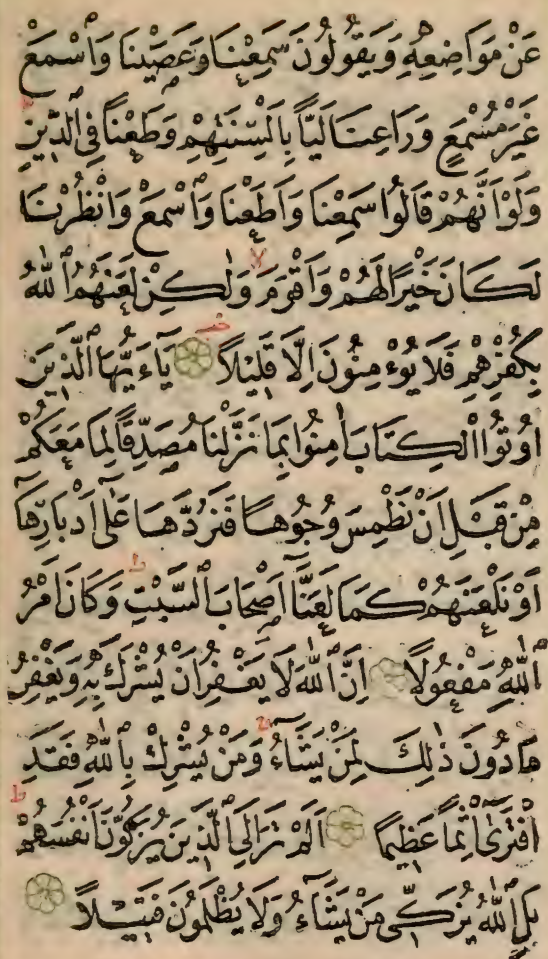 عَنْ مَوَاضِعِهِ وَيَقُولُونَ سَمِعْنَا وَعَصَيْنَا وَٱسْمَعْ
غَيْرَ مُسْمَعٍ وَرَاعِنَا لَيًّا بِاَلْسِنَتِهِمْ وَطَعْنًا فِي ٱلدِّينِ
وَلَوْ اَنَّهُمْ قَالُوا سَمِعْنَا وَاَطَعْنَا وَٱسْمَعْ وَانْظُرْنَا
لَكَانَ خَيْرًا لَهُمْ وَاَقْوَمَ وَلٰكِنْ لَعَنَهُمُ ٱللّٰهُ
بِكُفْرِهِمْ فَلَا يُؤْمِنُونَ اِلَّا قَلِيلًا يَآءَيُّهَا ٱلَّذِينَ
اُوتُوا ٱلْكِتَابَ اٰمِنُوا بِمَا نَزَّلْنَا مُصَدِّقًا لِمَا مَعَكُمْ
مِنْ قَبْلِ اَنْ نَطْمِسَ وُجُوهًا فَنَرُدَّهَا عَلٰٓى اَدْبَارِهَآ
اَوْ نَلْعَنَهُمْ كَمَا لَعَنَّآ اَصْحَابَ ٱلسَّبْتِ وَكَانَ اَمْرُ
ٱللّٰهِ مَفْعُولًا اِنَّ ٱللّٰهَ لَا يَغْفِرُ اَنْ يُشْرَكَ بِهِ وَيَغْفِرُ
مَا دُونَ ذٰلِكَ لِمَنْ يَشَآءُ وَمَنْ يُشْرِكْ بِٱللّٰهِ فَقَدِ
افْتَرٰٓى اِثْمًا عَظِيمًا اَلَمْ تَرَ اِلَى ٱلَّذِينَ يُزَكُّونَ اَنْفُسَهُمْ
بَلِ ٱللّٰهُ يُزَكِّى مَنْ يَشَآءُ وَلَا يُظْلَمُونَ فَتِيلًا